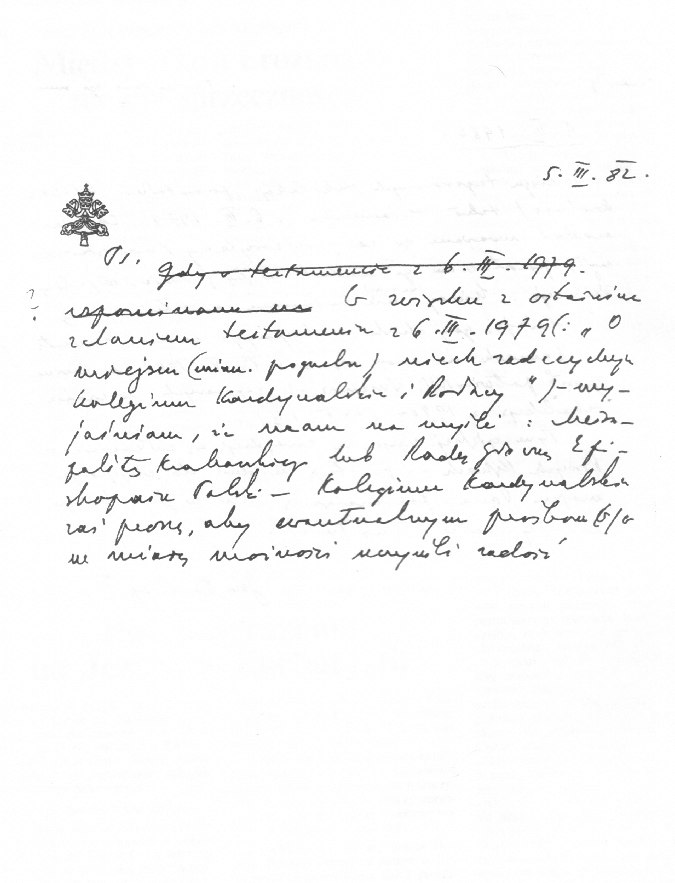 5. III. 82.
Ps. Gdy o testamencie z 6. III. 1979.
wspominam na W związku z ostatnim
zdaniem testamentu z 6. III. 1979 (: „O
miejscu (mian. pogrzebu) niech zadecyduje
Kolegium Kardynalskie i Rodacy") – wy-
jaśniam, że mam na myśli: Metro-
politę Krakowskiego lub Radę Główną Epi-
skopatu Polski – Kolegium Kardynalskie
zaś proszę, aby ewentualnym prośbom
w miarę możności uczynili zadość